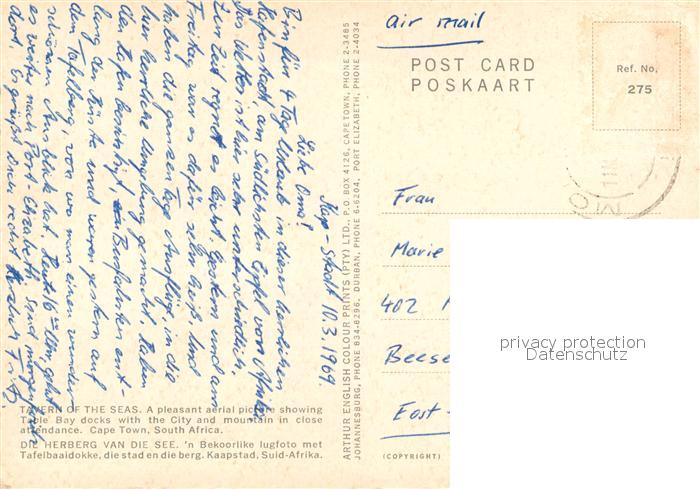 Kap-Stadt 10.3.1969.
Liebe Oma!
Bin für 4 Tage Urlaub in dieser herrlichen
Hafenstadt am südlichsten Zipfel von Afrika.
Das Wetter ist hier sehr unterschiedlich,
zur Zeit regnet es leicht. Gestern und am
Freitag war es dafür sehr heiß. Wir
haben die ganzen Tage Ausflüge in die
hier herrliche Umgebung gemacht. Haben
den Hafen besichtigt, Busfahrten ent-
lang der Küste und waren gestern auf
dem Tafelberg, von wo man einen wunder
schönen Ausblick hat. Heute 16 Uhr geht
es weiter nach Port-Elizabeth, sind morgen
dort. Es grüßt Dich recht
TAVERN OF THE SEAS. A pleasant aerial picture showing
Table Bay docks with the City and mountain in close
attendance. Cape Town, South Africa.
DIE HERBERG VAN DIE SEE. 'n Bekoorlike lugfoto met
Tafelbaaidokke, die stad en die berg. Kaapstad, Suid-Afrika.
ARTHUR ENGLISH COLOUR PRINTS (PTY) LTD., P.O. BOX 4126, CAPE TOWN, PHONE 2-3485
JOHANNESBURG, PHONE 834-8296. DURBAN, PHONE 6-6204. PORT ELIZABETH, PHONE 2-4034
air mail
POST CARD
POSKAART
Ref. No.
275
Frau
Marie
402
Beese
East-
(COPYRIGHT)
privacy protection
Datenschutz